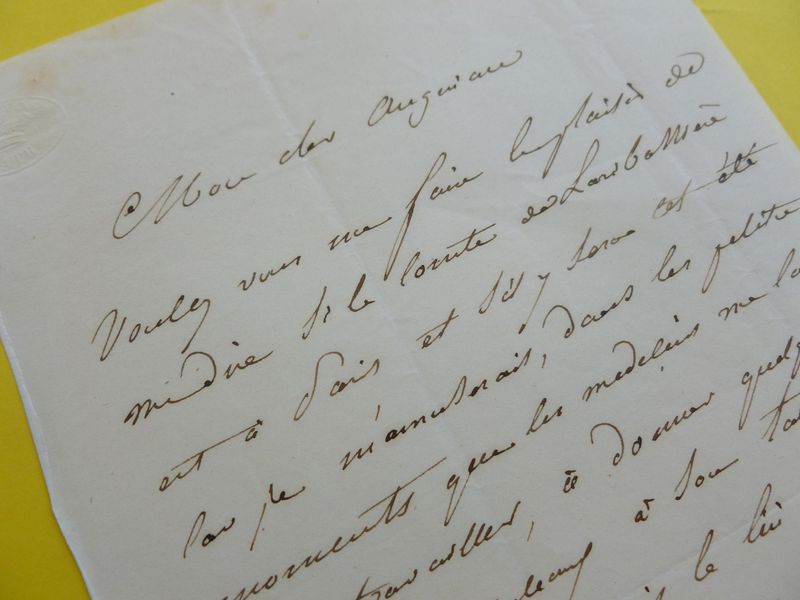 Mon cher Anguiau
Voulez vous me faire le plaisir de
me dire si le Comte de Lariboisière
est à Paris et s'il y sera cet été
car je m'amuserais, dans les petits
moments que les médecins me la
travailler, à donner quelq
à son ta
le liv